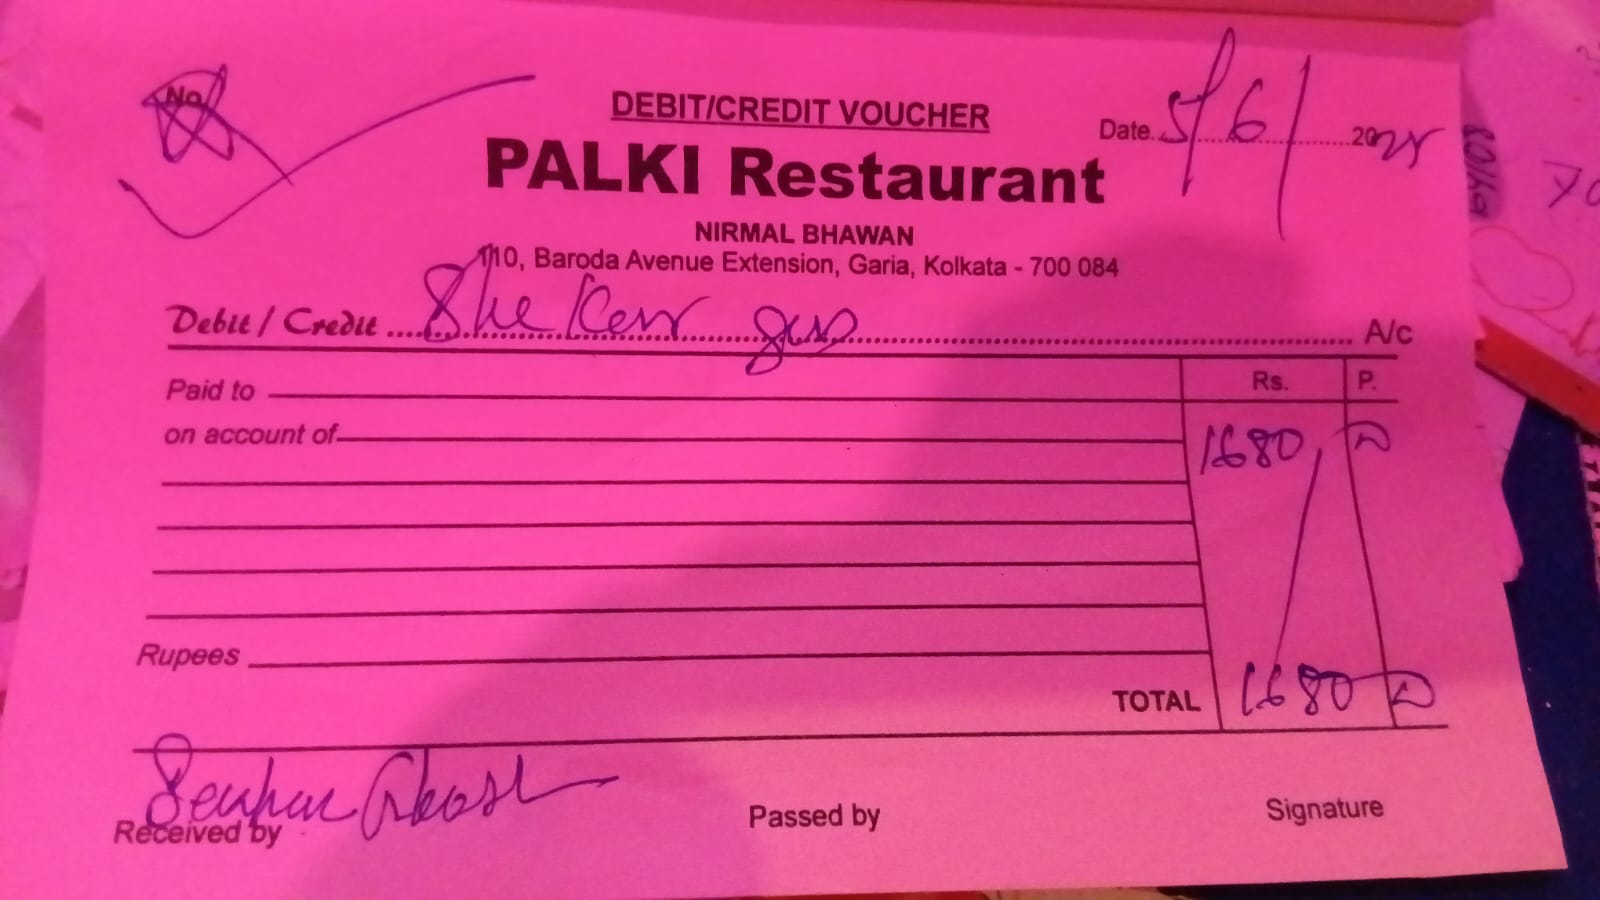 No.
DEBIT/CREDIT VOUCHER
Date 5/6/2025
PALKI Restaurant
NIRMAL BHAWAN
110, Baroda Avenue Extension, Garia, Kolkata - 700 084
Debit / Credit A/c
Paid to Rs. P.
on account of 1680
Rupees
TOTAL 1680
Received by Passed by Signature
70